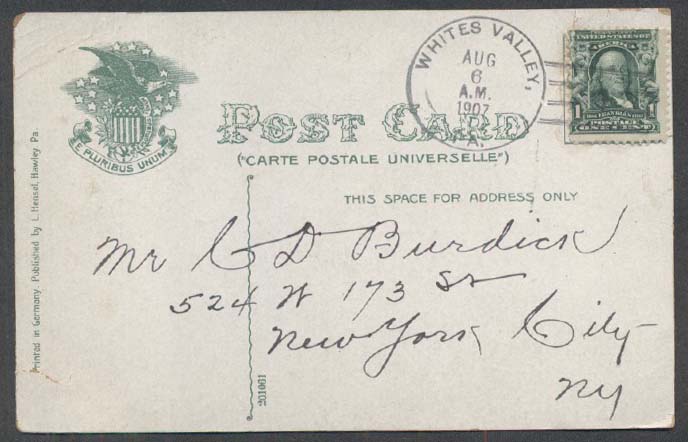 E PLURIBUS UNUM
WHITES VALLEY,
AUG
6
A.M.
1907
A.
UNITED STATES OF
AMERICA
1 1
POSTAGE
ONE CENT
POST CARD
("CARTE POSTALE UNIVERSELLE")
THIS SPACE FOR ADDRESS ONLY
Mr C D Burdick
524 W 173 St
New York City
NY
Printed in Germany. Published by L. Hensel, Hawley Pa.
201061